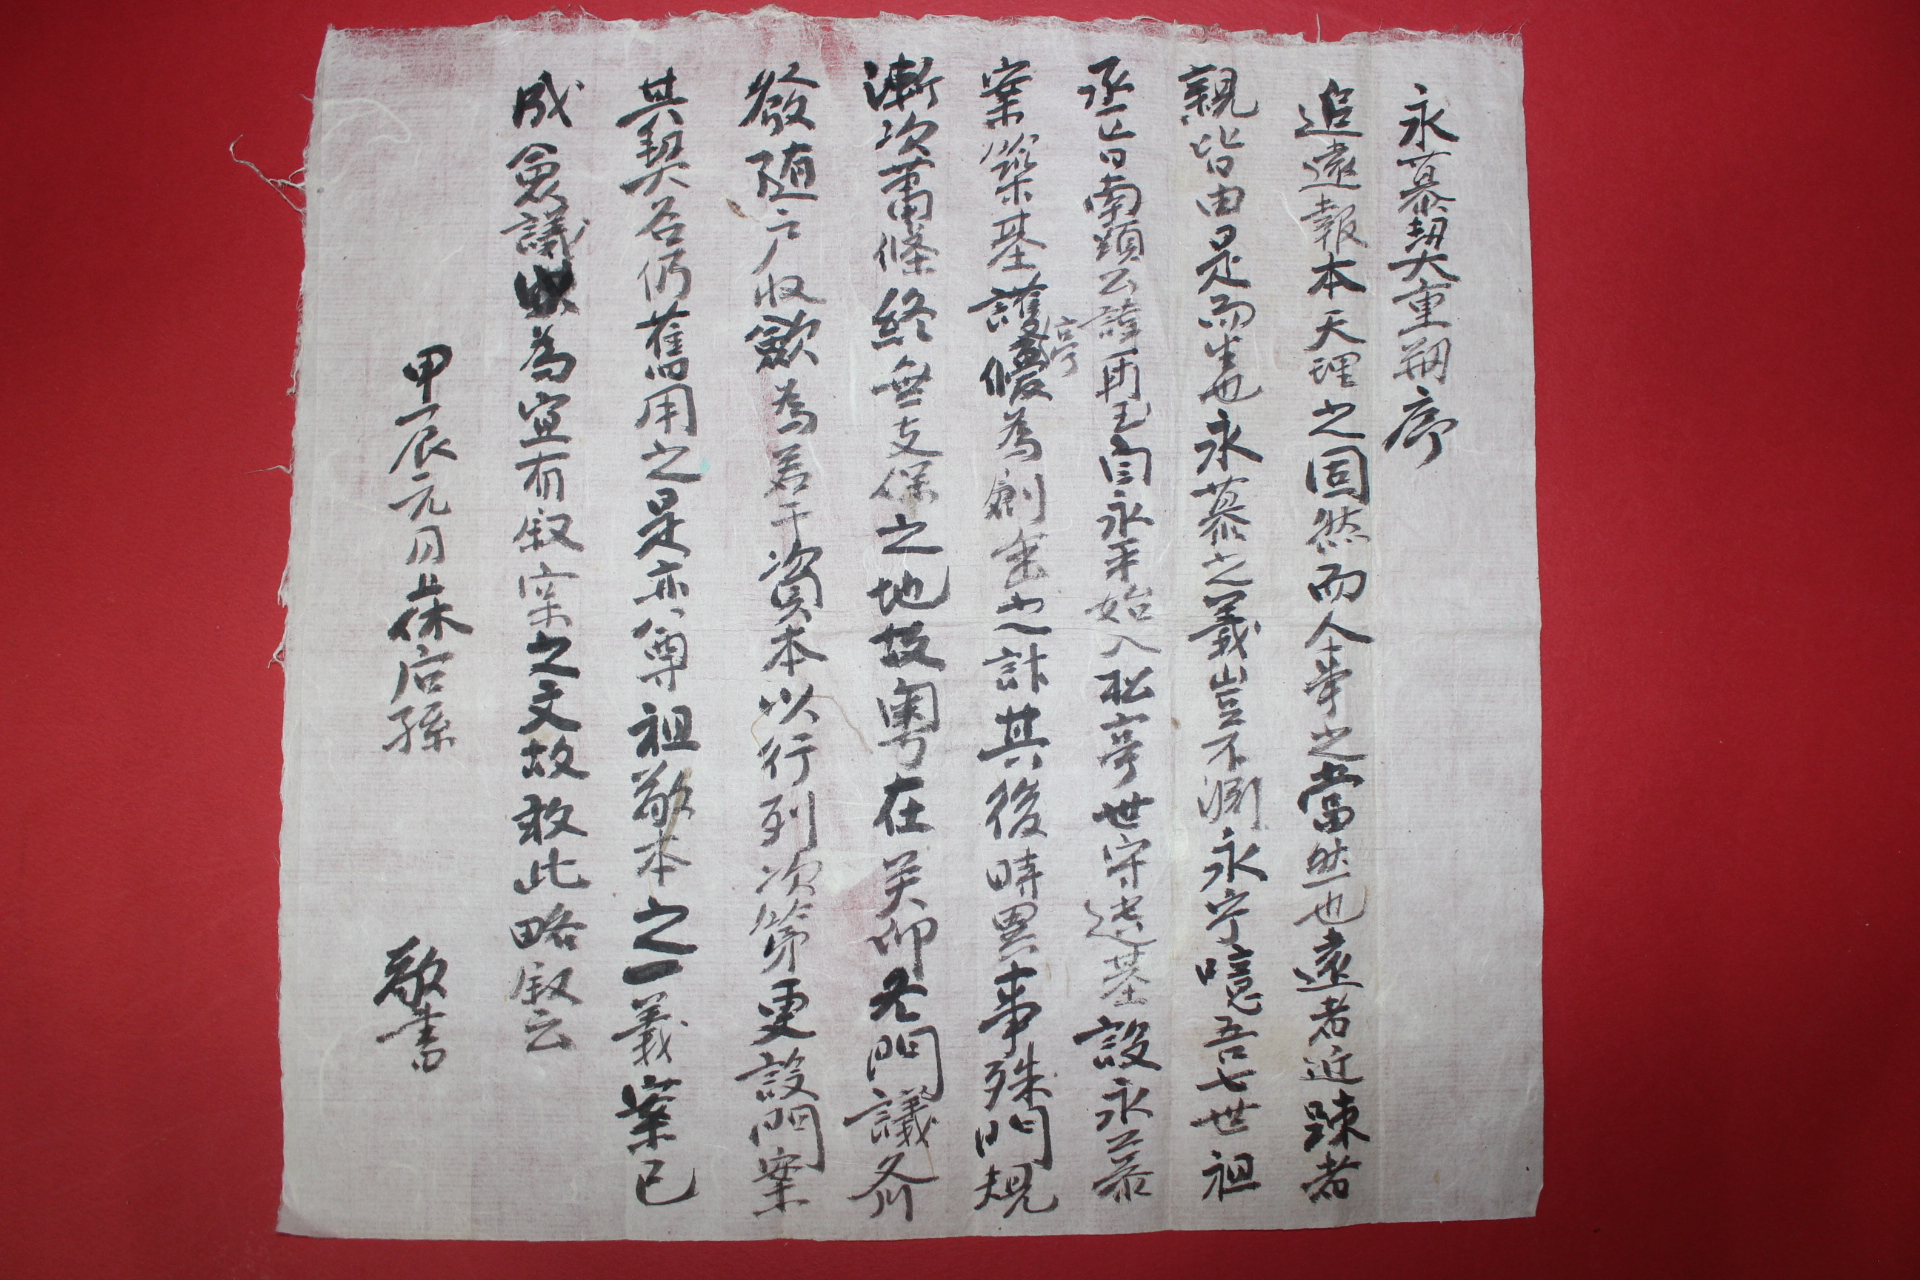 永慕契大重刱序
追遠報本天理之固然而人事之當然也遠者近踈者
親皆由是而生也永慕之義豈不淵永乎噫吾七世祖
丞旨南顯公諱再玉自永平始入松亭世守遺基設永慕
案築基護亭為創垂之計其後時異事殊門規
漸次蕭條終無支保之地故粵在癸卯冬門議齐
發随戶收斂為若干資本以行列次第更設門案
其契名仍舊用之是亦尊祖敬本之一義案已
成僉議以為宜有叙案之文故敢此略叙云
甲辰元月 后孫 敬書